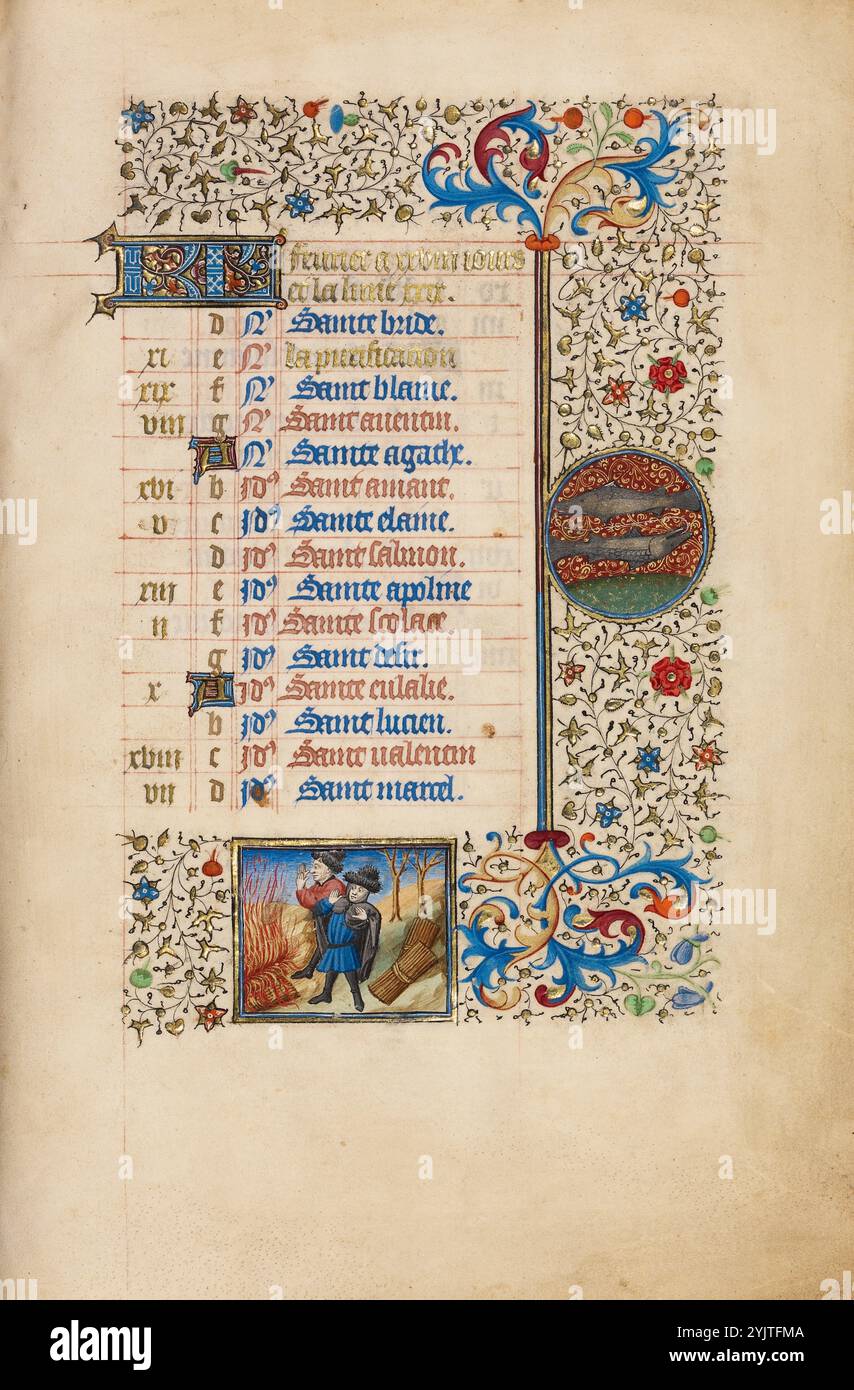 KL feurier a xxviii iours
et la lune xxix.
d N' Sainte bride.
xi e N' la purification
xix f N' Saint blaise.
viii g N' Saint auentin.
A N' Sainte agathe.
xvi b id' Saint amant.
v c id' Sainte elaine.
d id' Saint salmon.
xiii e id' Sainte apoline
ii f id' Sainte scolace.
g id' Saint desir.
x A id' Sainte eulalie.
b id' Saint lucien.
xviii c id' Saint ualentin
vii d id' Saint marcel.
alamy
Image ID: 2YJTFMA
www.alamy.com